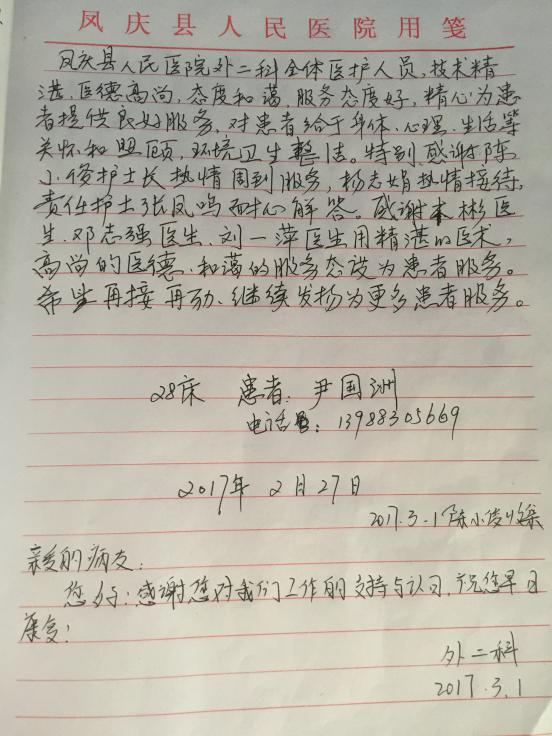 凤庆县人民医院用笺
凤庆县人民医院外二科全体医护人员,技术精
湛、医德高尚,态度和蔼,服务态度好,精心为患
者提供良好服务,对患者给于身体、心理、生活等
关怀和照顾,环境卫生整洁。特别感谢陈
小俊护士长热情周到服务,杨志娟热情接待,
责任护士张凤鸣耐心解答。感谢 彬医
生、邓志强医生、刘一萍医生用精湛的医术,
高尚的医德、和蔼的服务态设为患者服务。
希望再接再励、继续发扬为更多患者服务。
28床 患者:尹国洲
电话号:13988305669
2017年2月27日
2017.3.1陈小俊收
亲爱的病友:
您好!感谢您对我们工作的支持与认可,祝您早日
康复!
外二科
2017.3.1